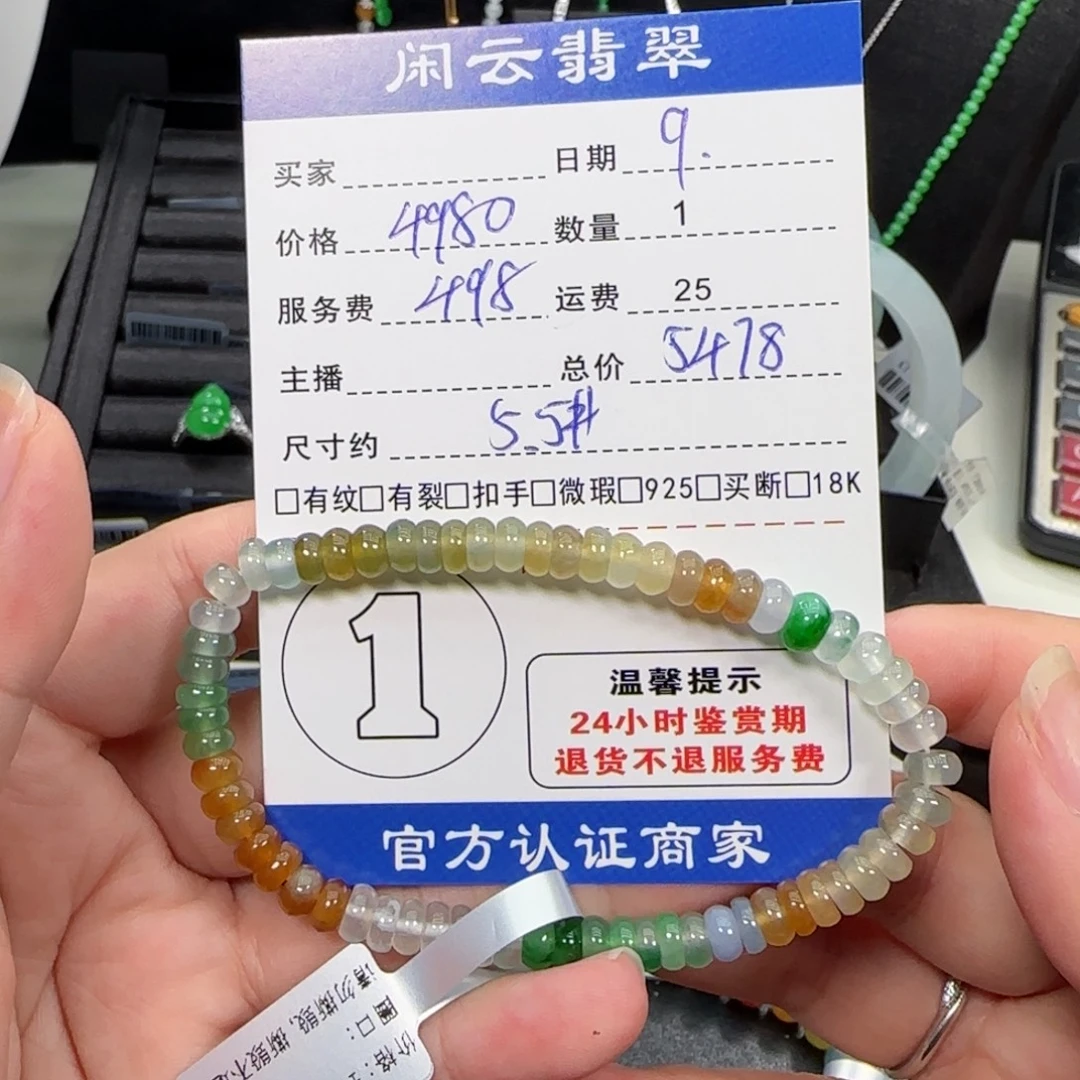 闲云翡翠
买家 日期 9.
价格 4980 数量 1
服务费 498 运费 25
主播 总价 5478
尺寸约 5.5#
□有纹□有裂□扣手□微瑕□925□买断□18K
1
温馨提示
24小时鉴赏期
退货不退服务费
官方认证商家
请勿撕毁,撕毁不退
圈口:
价格: